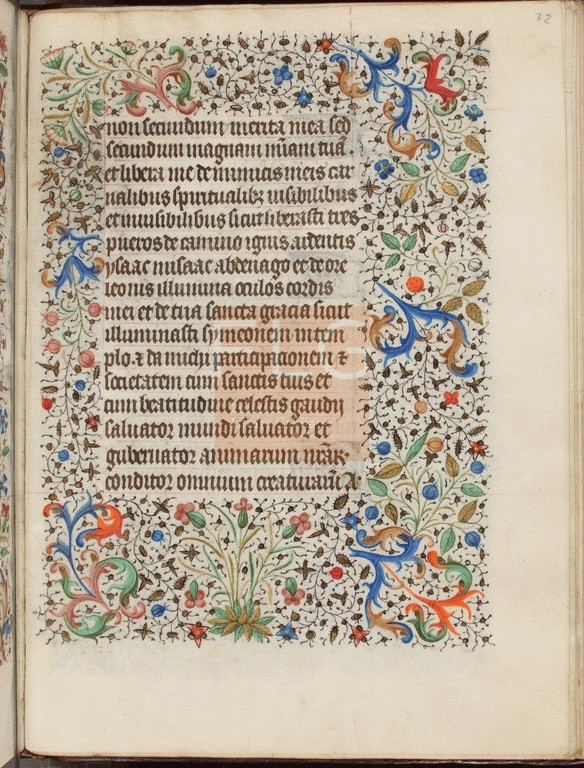 72
non secundum merita mea sed
secundum magnam miam tuā.
et libera me de inimicis meis car
nalibus spiritualibꝫ uisibilibus
et inuisibilibus sicut liberasti tres
pueros de camino ignis ardentis
ysaac misaac abdenago et de ore
leonis illumina oculos cordis
mei et de tua sancta gracia sicut
illuminasti symeonem in tem
plo. ⁊ da michi participacionem ⁊
societatem cum sanctis tuis et
cum beatitudine celestis gaudij
saluator mundi saluator et
gubernator animarum nr̄aꝝ.
conditor omnium creaturarū A·
FLG